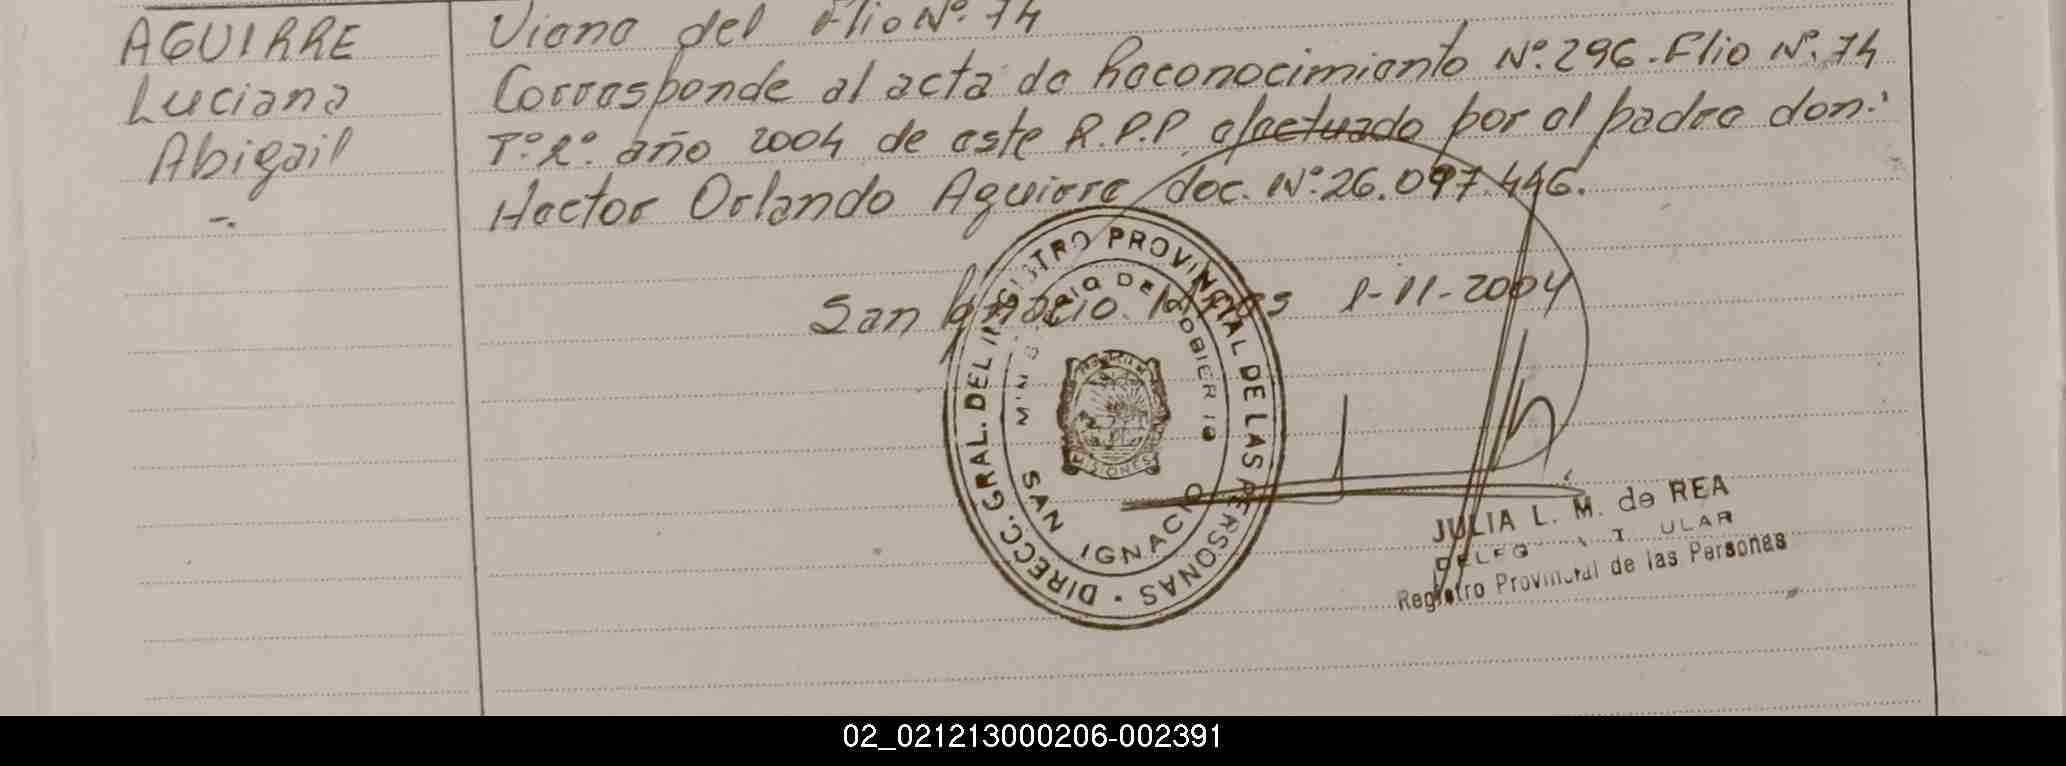 AGUIRRE
Luciana
Abigail
-.
Viene del Flio Nº. 74
Corresponde al acta de Reconocimiento Nº. 296. Flio Nº. 74
Tº. 2º. año 2004 de este R.P.P. efectuado por el padre don:
Hector Orlando Aguirre doc. Nº 26.097.446.
San Ignacio. 1-11-2004
DIRECC. GRAL. DEL REGISTRO PROVINCIAL DE LAS PERSONAS
MINISTERIO DE GOBIERNO
MISIONES
SAN IGNACIO
JULIA L. M. de REA
Registro Provincial de las Personas
02_021213000206-002391